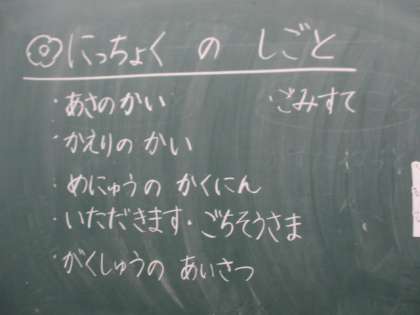 にっちょく の しごと
・あさのかい
・ごみすて
・かえりの かい
・めにゅうの かくにん
・いただきます・ごちそうさま
・がくしゅうの あいさつ